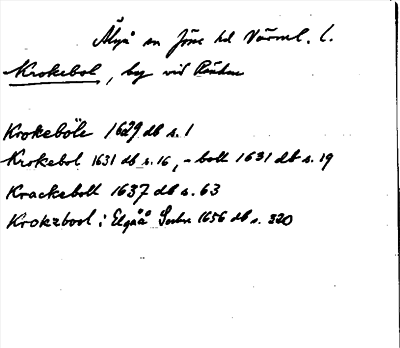 Älgå sn Jösse hd Värml. l.
Krokebol, by vid
Krokeböle 1629 db s. 1
Krokebol 1631 db s. 16, -boll 1631 db s. 19
Krackeboll 1637 db s. 63
Krokzbool i Elgåå Sochn 1656 db s. 320